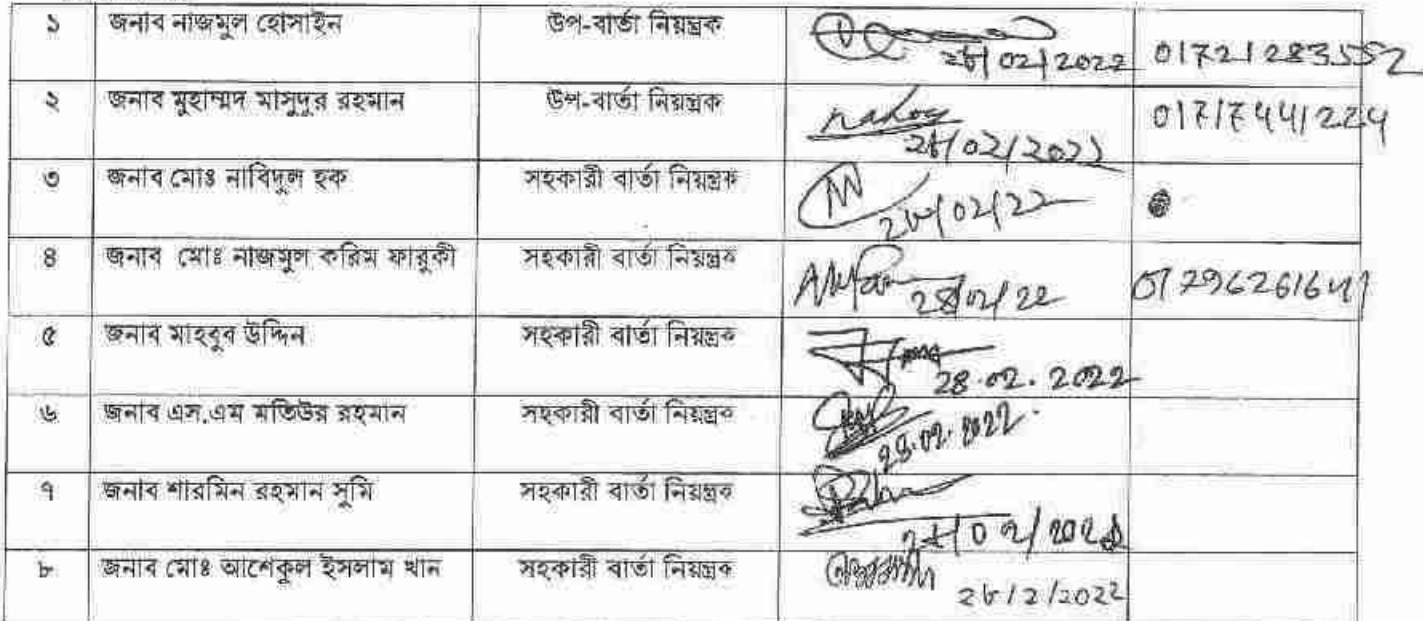 ১ জনাব নাজমুল হোসাইন উপ-বার্তা নিয়ন্ত্রক ২৮/02/2022 01721283552
২ জনাব মুহাম্মদ মাসুদুর রহমান উপ-বার্তা নিয়ন্ত্রক ২৮/02/2022 01717441224
৩ জনাব মোঃ নাবিদুল হক সহকারী বার্তা নিয়ন্ত্রক ২৮/02/22
৪ জনাব মোঃ নাজমুল করিম ফারুকী সহকারী বার্তা নিয়ন্ত্রক 28/02/22
৫ জনাব মাহবুব উদ্দিন সহকারী বার্তা নিয়ন্ত্রক 28.02.2022
৬ জনাব এস.এম মতিউর রহমান সহকারী বার্তা নিয়ন্ত্রক 28.02.2022
৭ জনাব শারমিন রহমান সুমি সহকারী বার্তা নিয়ন্ত্রক
৮ জনাব মোঃ আশেকুল ইসলাম খান সহকারী বার্তা নিয়ন্ত্রক ২৮/2/2022